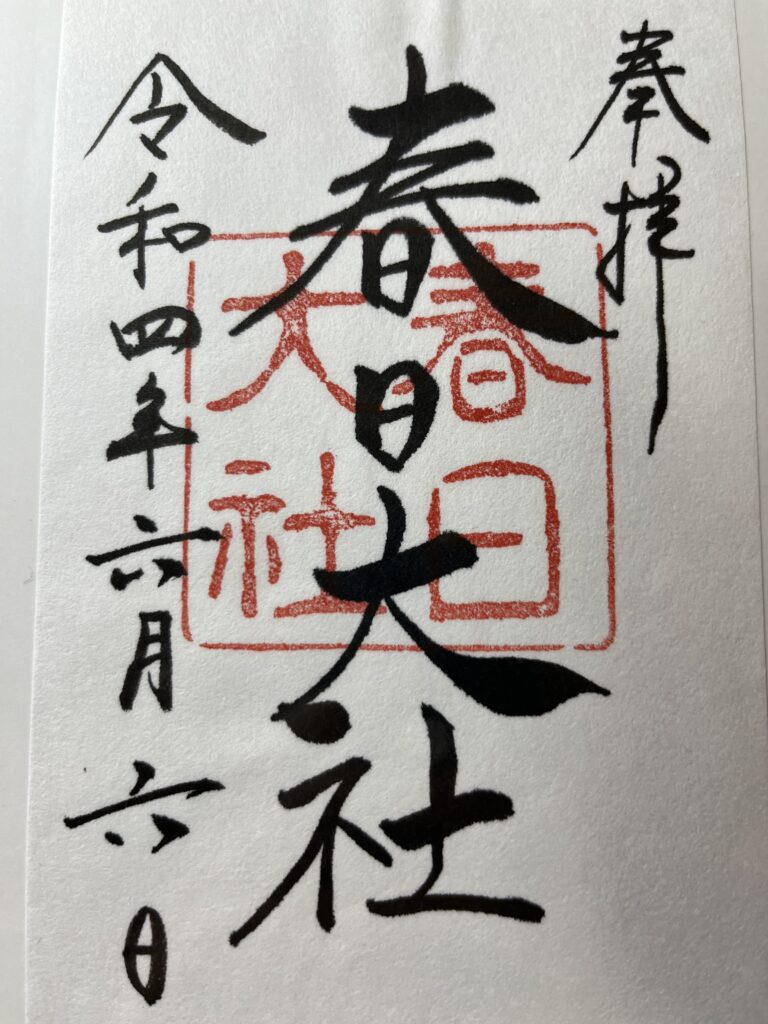 奉拝
春日大社
春日
大社
令和四年六月六日